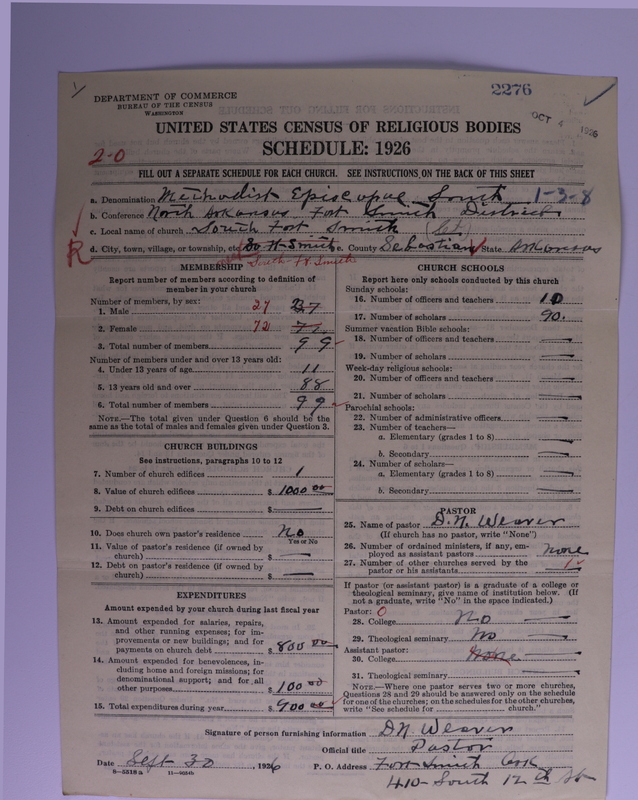 2276
DEPARTMENT OF COMMERCE
BUREAU OF THE CENSUS
WASHINGTON
OCT 4 1926
UNITED STATES CENSUS OF RELIGIOUS BODIES
SCHEDULE: 1926
2-0
FILL OUT A SEPARATE SCHEDULE FOR EACH CHURCH. SEE INSTRUCTIONS ON THE BACK OF THIS SHEET
a. Denomination Methodist Episcopal South 1-3-8
b. Conference North Arkansas Fort Smith District
c. Local name of church South Fort Smith
R
d. City, town, village, or township, etc. So Ft Smith e. County Sebastian State Arkansas
South Ft Smith
MEMBERSHIP
Report number of members according to definition of
member in your church
Number of members, by sex:
1. Male 27 27
2. Female 72 77
3. Total number of members 99
Number of members under and over 13 years old:
4. Under 13 years of age 11
5. 13 years old and over 88
6. Total number of members 99
NOTE.—The total given under Question 6 should be the
same as the total of males and females given under Question 3.
CHURCH BUILDINGS
See instructions, paragraphs 10 to 12
7. Number of church edifices 1
8. Value of church edifices $ 1000 00
9. Debt on church edifices $
10. Does church own pastor's residence No
Yes or No
11. Value of pastor's residence (if owned by
church) $
12. Debt on pastor's residence (if owned by
church) $
EXPENDITURES
Amount expended by your church during last fiscal year
13. Amount expended for salaries, repairs,
and other running expenses; for im-
provements or new buildings; and for
payments on church debt $ 800 00
14. Amount expended for benevolences, in-
cluding home and foreign missions; for
denominational support; and for all
other purposes $ 100 00
15. Total expenditures during year $ 900 00
CHURCH SCHOOLS
Report here only schools conducted by this church
Sunday schools:
16. Number of officers and teachers 10
17. Number of scholars 90.
Summer vacation Bible schools:
18. Number of officers and teachers
19. Number of scholars
Week-day religious schools:
20. Number of officers and teachers
21. Number of scholars
Parochial schools:
22. Number of administrative officers
23. Number of teachers—
a. Elementary (grades 1 to 8)
b. Secondary
24. Number of scholars—
a. Elementary (grades 1 to 8)
b. Secondary
PASTOR
25. Name of pastor D. N. Weaver
(If church has no pastor, write "None")
26. Number of ordained ministers, if any, em-
ployed as assistant pastors None
27. Number of other churches served by the
pastor or his assistants 1
If pastor (or assistant pastor) is a graduate of a college or
theological seminary, give name of institution below. (If
not a graduate, write "No" in the space indicated.)
Pastor: 0
28. College No
29. Theological seminary No
Assistant pastor:
30. College None
31. Theological seminary
NOTE.—Where one pastor serves two or more churches,
Questions 28 and 29 should be answered only on the schedule
for one of the churches; on the schedules for the other churches,
write "See schedule for church."
Signature of person furnishing information D N Weaver
Official title Pastor
Date Sept 30, 1926 P. O. Address Fort Smith Ark
8-5318 a
410- South 12th St